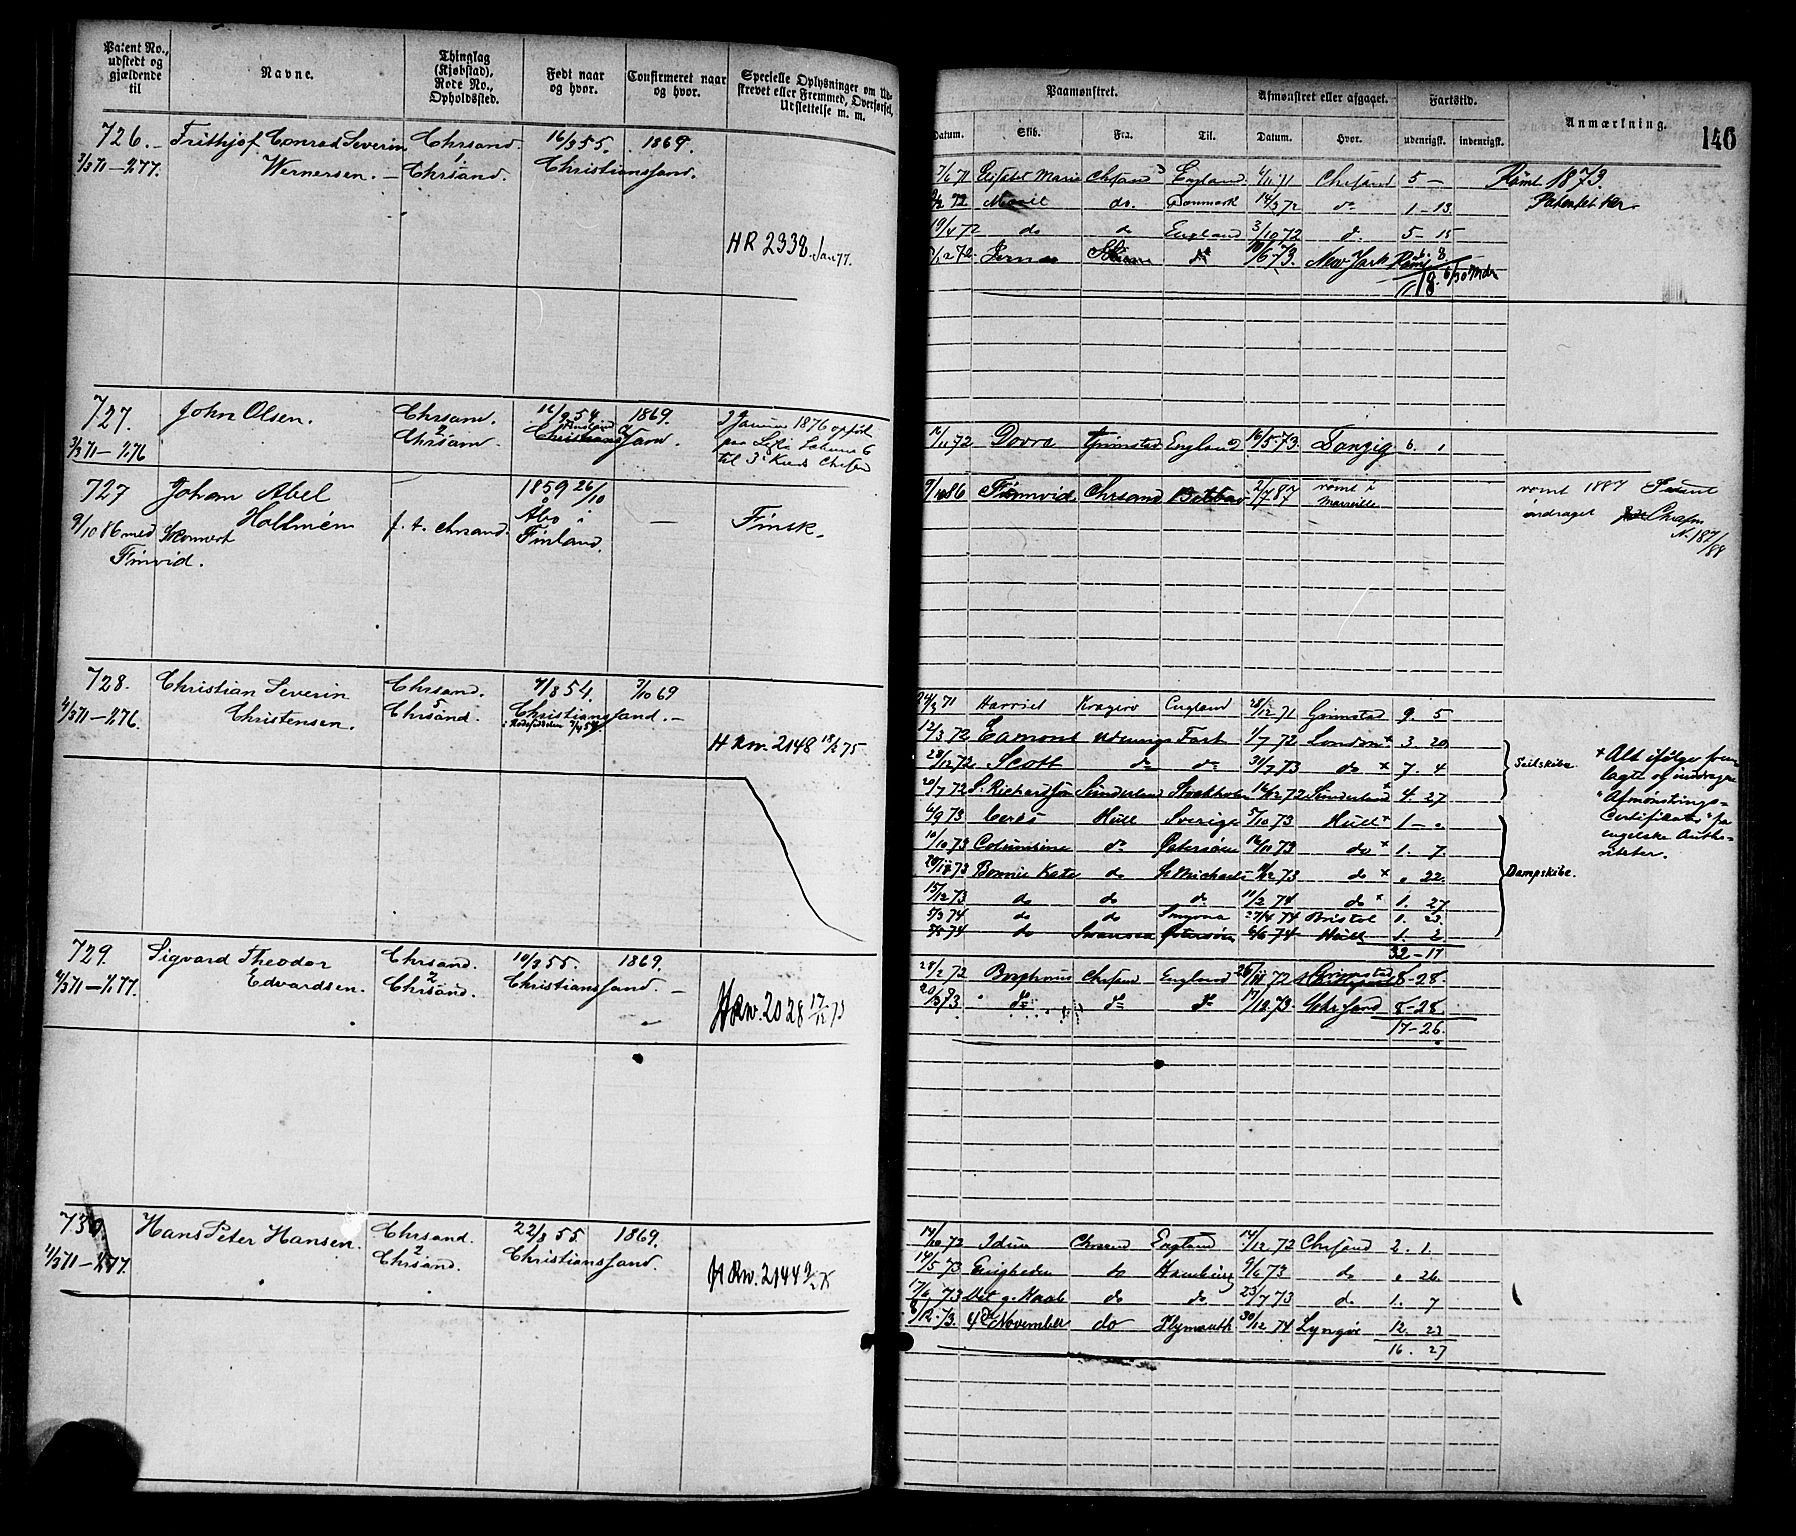 Patent No., udstedt og gjældende til
Navne.
Thinglag (Kjøbstad), Rode No., Opholdssted.
Født naar og hvor.
Confirmeret naar og hvor.
Specielle Oplysninger om Ud-
skrevet eller Fremmed, Overførsel,
Udslettelse m. m.
726.- Frithjof Conrad Severin Chrsand. 16/3 55. 1869.
3/3 71 - 1/1 77. Wernersen. - Chrsand. Christianssand.
HR 2338. Jan 77.
727. John Olsen. Chrsand. 16/9 54. 1869.
3/3 71 - 1/1 76 2 Chrsand.
727 Johan Abel 1859 26/10
9/10 86 med Hollmén f. t. Chrsand. Abo i — Finsk.
Skonnert Finland.
Finvid.
728. Christian Severin Chrsand. 7/8 54. 1/10 69
4/3 71 - 1/1 76. Christensen. 5 Chrsand. Christianssand. -
H Rw. 2148 18/3 75.
729. Sigvard Theodor Chrsand. 10/3 55. 1869.
4/3 71 - 1/1 77. Edvardsen. 2 Chrsand. Christianssand. -
H Rw. 2028 17/12 73
730. Hans Peter Hansen. Chrsand. 22/8 55. 1869.
4/3 71 - 1/1 77. 2 Chrsand. Christianssand.
H Rw. 2144
Paamønstret.
Afmønstret eller afgaaet.
Fartstid.
Anmærkning.
140
Datum.
Skib.
Fra.
Til.
Datum.
Hvor.
udenrigsk.
indenrigsk.
7/6 71 Marie Chrsand England Chrsand 5 - Rømt 1873.
do. Danmark 14/3 72 do 1 - 13 Patentet her
19/4 72 do do England 3/10 72 do 5 - 15
/6 73. New York Rømt 6. 8
72 Dovre Grimstad England 16/5 73. Danzig 6. 1
9/10 86 Finnvid Chrsand 2/7 87 rømt i Marseille rømt 1887
inddraget
N. 187/88
71 Harriet Kragerø England 28/12 71 Grimstad 9. 5
12/3 72 Eamont Udenrigs Fart 1/7 72 London + 3. 20
28/12 72 Scott do do 31/7 73 do + 7. 4 Seilskibe.
20/7 72 S. Richardson Sunderland Stockholm 72 Sunderland + 4. 27
6/9 73 Ceres Hull Sverige 5/10 73 Hull + 1 - .
10/10 73 Columbine do Petersborg 73 do + 1. 7.
73 Bonnie Kate do St Michaels 73 do + . 22 Dampskibe.
15/12 73 do do do 11/2 74 do + 1. 27
5/3 74 do do Smyrna 27/4 74 Bristol 1. 23
74 do Swansea 6/6 74 Hull 1. 2
32 - 17
+ Alt ifølge frem-
lagte og inddragne
"Afmønstrings-
Certifikater" fra
engelske Autho-
riteter.
28/2 72 Chrsand England 72 Grimstad 8 - 28.
20/3 73 do do do 17/12 73. Chrsand 8 - 28
17 - 26.
14/10 72 Idun Chrsand England 14/12 72 Chrsand 2. 1.
14/5 73 Enigheden do Hamburg 9/6 73 do . 26.
17/6 73 Det g. Haab do do 23/7 73 do 1. 7
8/12 73. 4de November do Plymouth 30/12 74 Lyngør 12. 23
16. 27